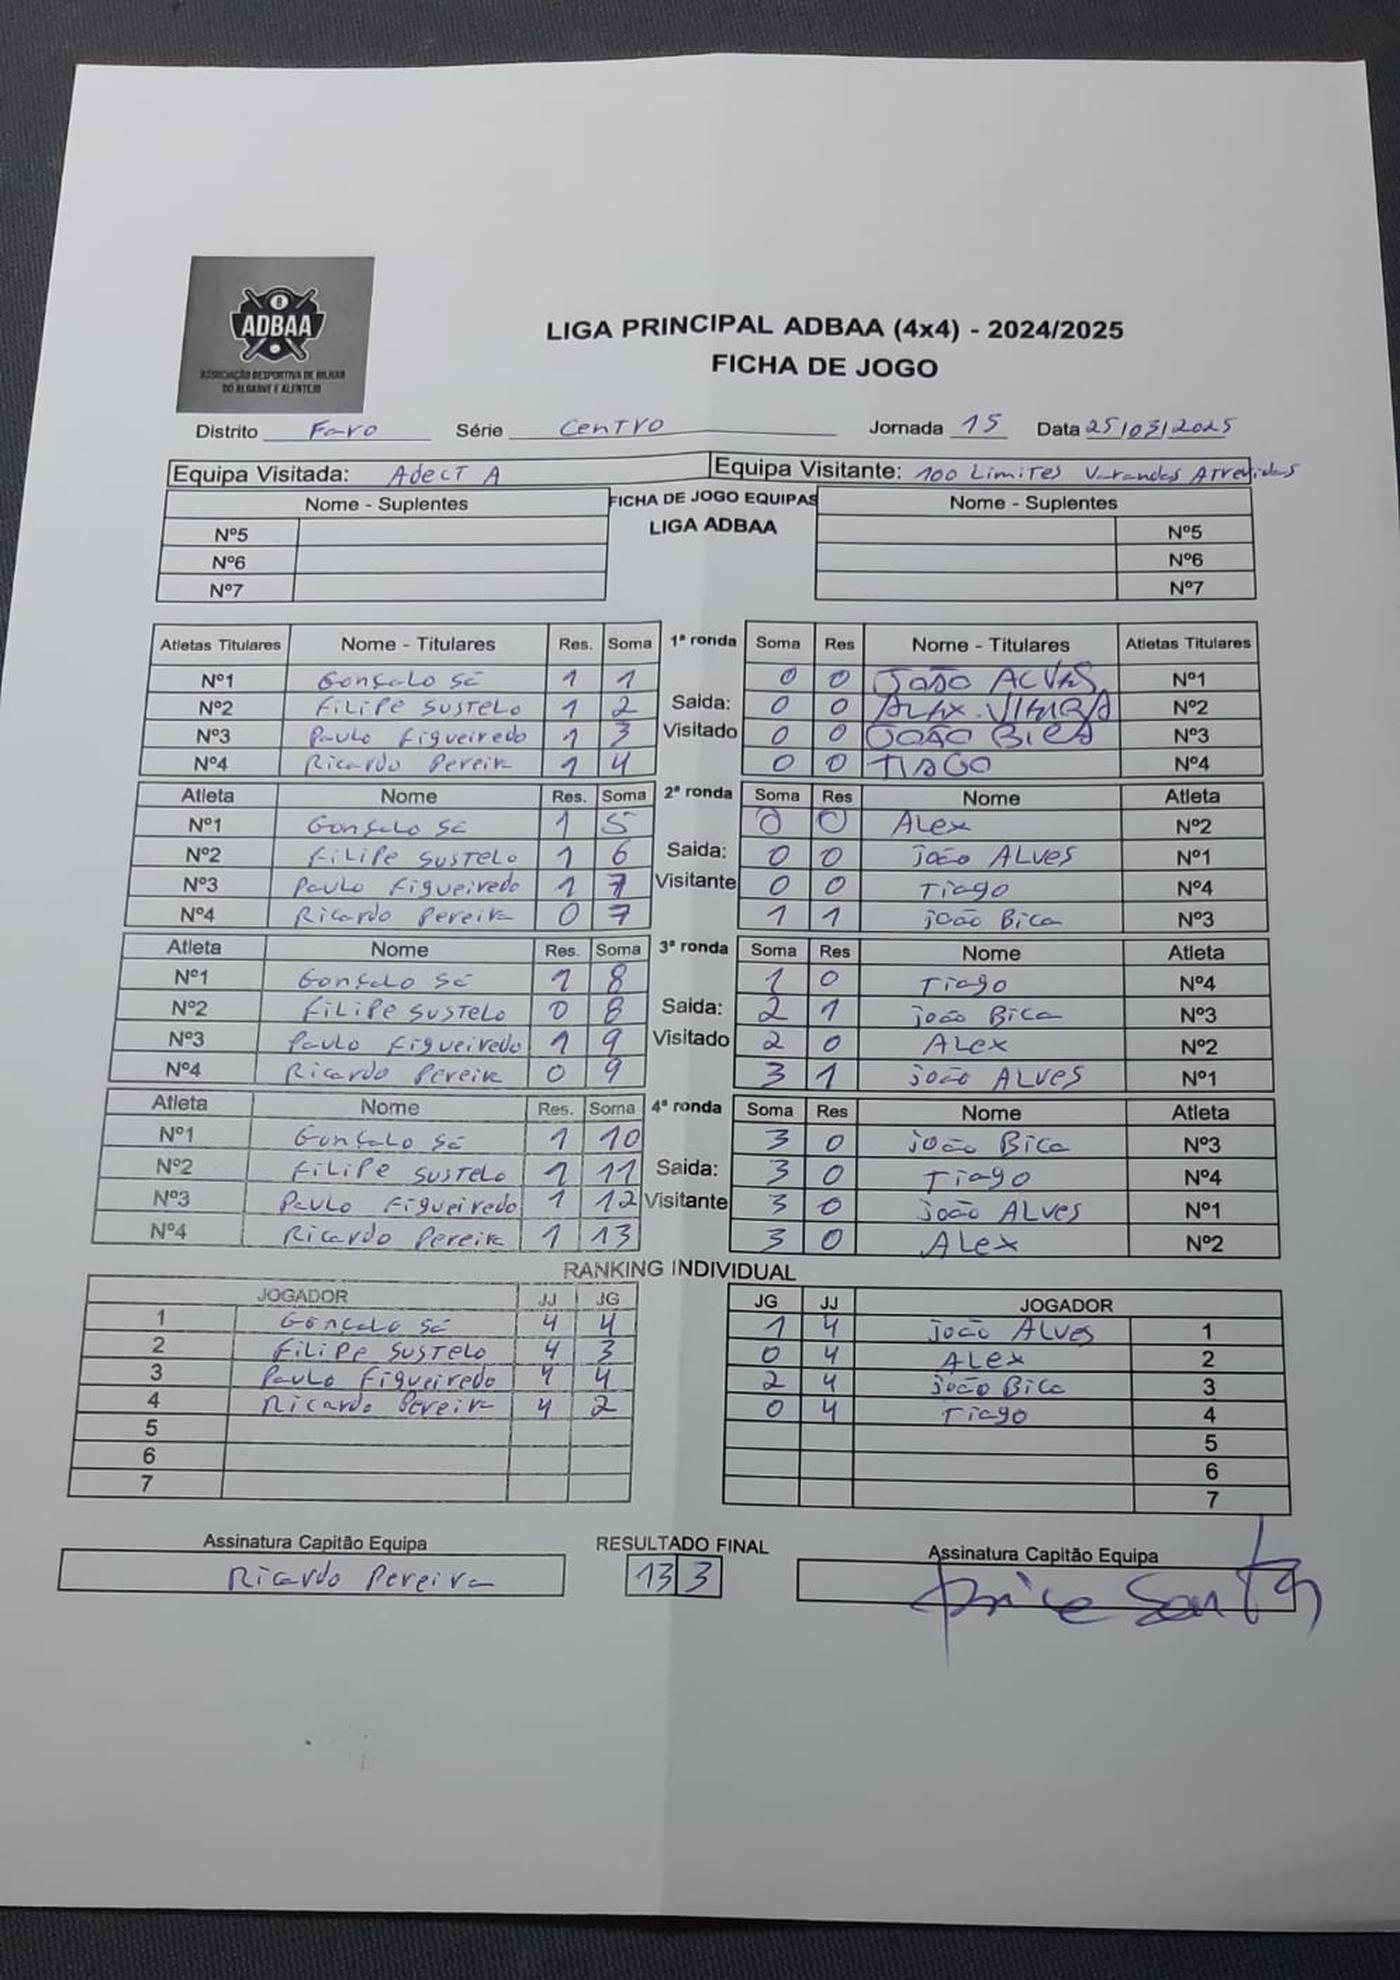 8
ADBAA
ASSOCIAÇÃO DESPORTIVA DE BILHAR
DO ALGARVE E ALENTEJO
LIGA PRINCIPAL ADBAA (4x4) - 2024/2025
FICHA DE JOGO
Distrito Faro Série Centro Jornada 15 Data 25/03/2025
Equipa Visitada: Adect A Equipa Visitante: 100 Limites Varandas Atrevidas
Nome - Suplentes FICHA DE JOGO EQUIPAS Nome - Suplentes
LIGA ADBAA
Nº5 Nº5
Nº6 Nº6
Nº7 Nº7
Atletas Titulares Nome - Titulares Res. Soma 1ª ronda Soma Res Nome - Titulares Atletas Titulares
Nº1 Gonçalo Sé 1 1 0 0 JOÃO ALVES Nº1
Nº2 Filipe Sustelo 1 2 Saida: 0 0 ALEX.VIEIRA Nº2
Nº3 Paulo Figueiredo 1 3 Visitado 0 0 JOÃO BICA Nº3
Nº4 Ricardo Pereir 1 4 0 0 TIAGO Nº4
Atleta Nome Res. Soma 2ª ronda Soma Res Nome Atleta
Nº1 Gonçalo Sé 1 5 0 0 Alex Nº2
Nº2 Filipe Sustelo 1 6 Saida: 0 0 João Alves Nº1
Nº3 Paulo Figueiredo 1 7 Visitante 0 0 Tiago Nº4
Nº4 Ricardo Pereira 0 7 1 1 João Bica Nº3
Atleta Nome Res. Soma 3ª ronda Soma Res Nome Atleta
Nº1 Gonçalo Sé 1 8 1 0 Tiago Nº4
Nº2 Filipe Sustelo 0 8 Saida: 2 1 João Bica Nº3
Nº3 Paulo Figueiredo 1 9 Visitado 2 0 Alex Nº2
Nº4 Ricardo Pereira 0 9 3 1 João Alves Nº1
Atleta Nome Res. Soma 4ª ronda Soma Res Nome Atleta
Nº1 Gonçalo Sé 1 10 3 0 João Bica Nº3
Nº2 Filipe Sustelo 1 11 Saida: 3 0 Tiago Nº4
Nº3 Paulo Figueiredo 1 12 Visitante 3 0 João Alves Nº1
Nº4 Ricardo Pereira 1 13 3 0 Alex Nº2
RANKING INDIVIDUAL
JOGADOR JJ JG JG JJ JOGADOR
1 Gonçalo Sé 4 4 1 4 João Alves 1
2 Filipe Sustelo 4 3 0 4 Alex 2
3 Paulo Figueiredo 4 4 2 4 João Bica 3
4 Ricardo Pereira 4 2 0 4 Tiago 4
5 5
6 6
7 7
Assinatura Capitão Equipa RESULTADO FINAL Assinatura Capitão Equipa
Ricardo Pereira 13 3